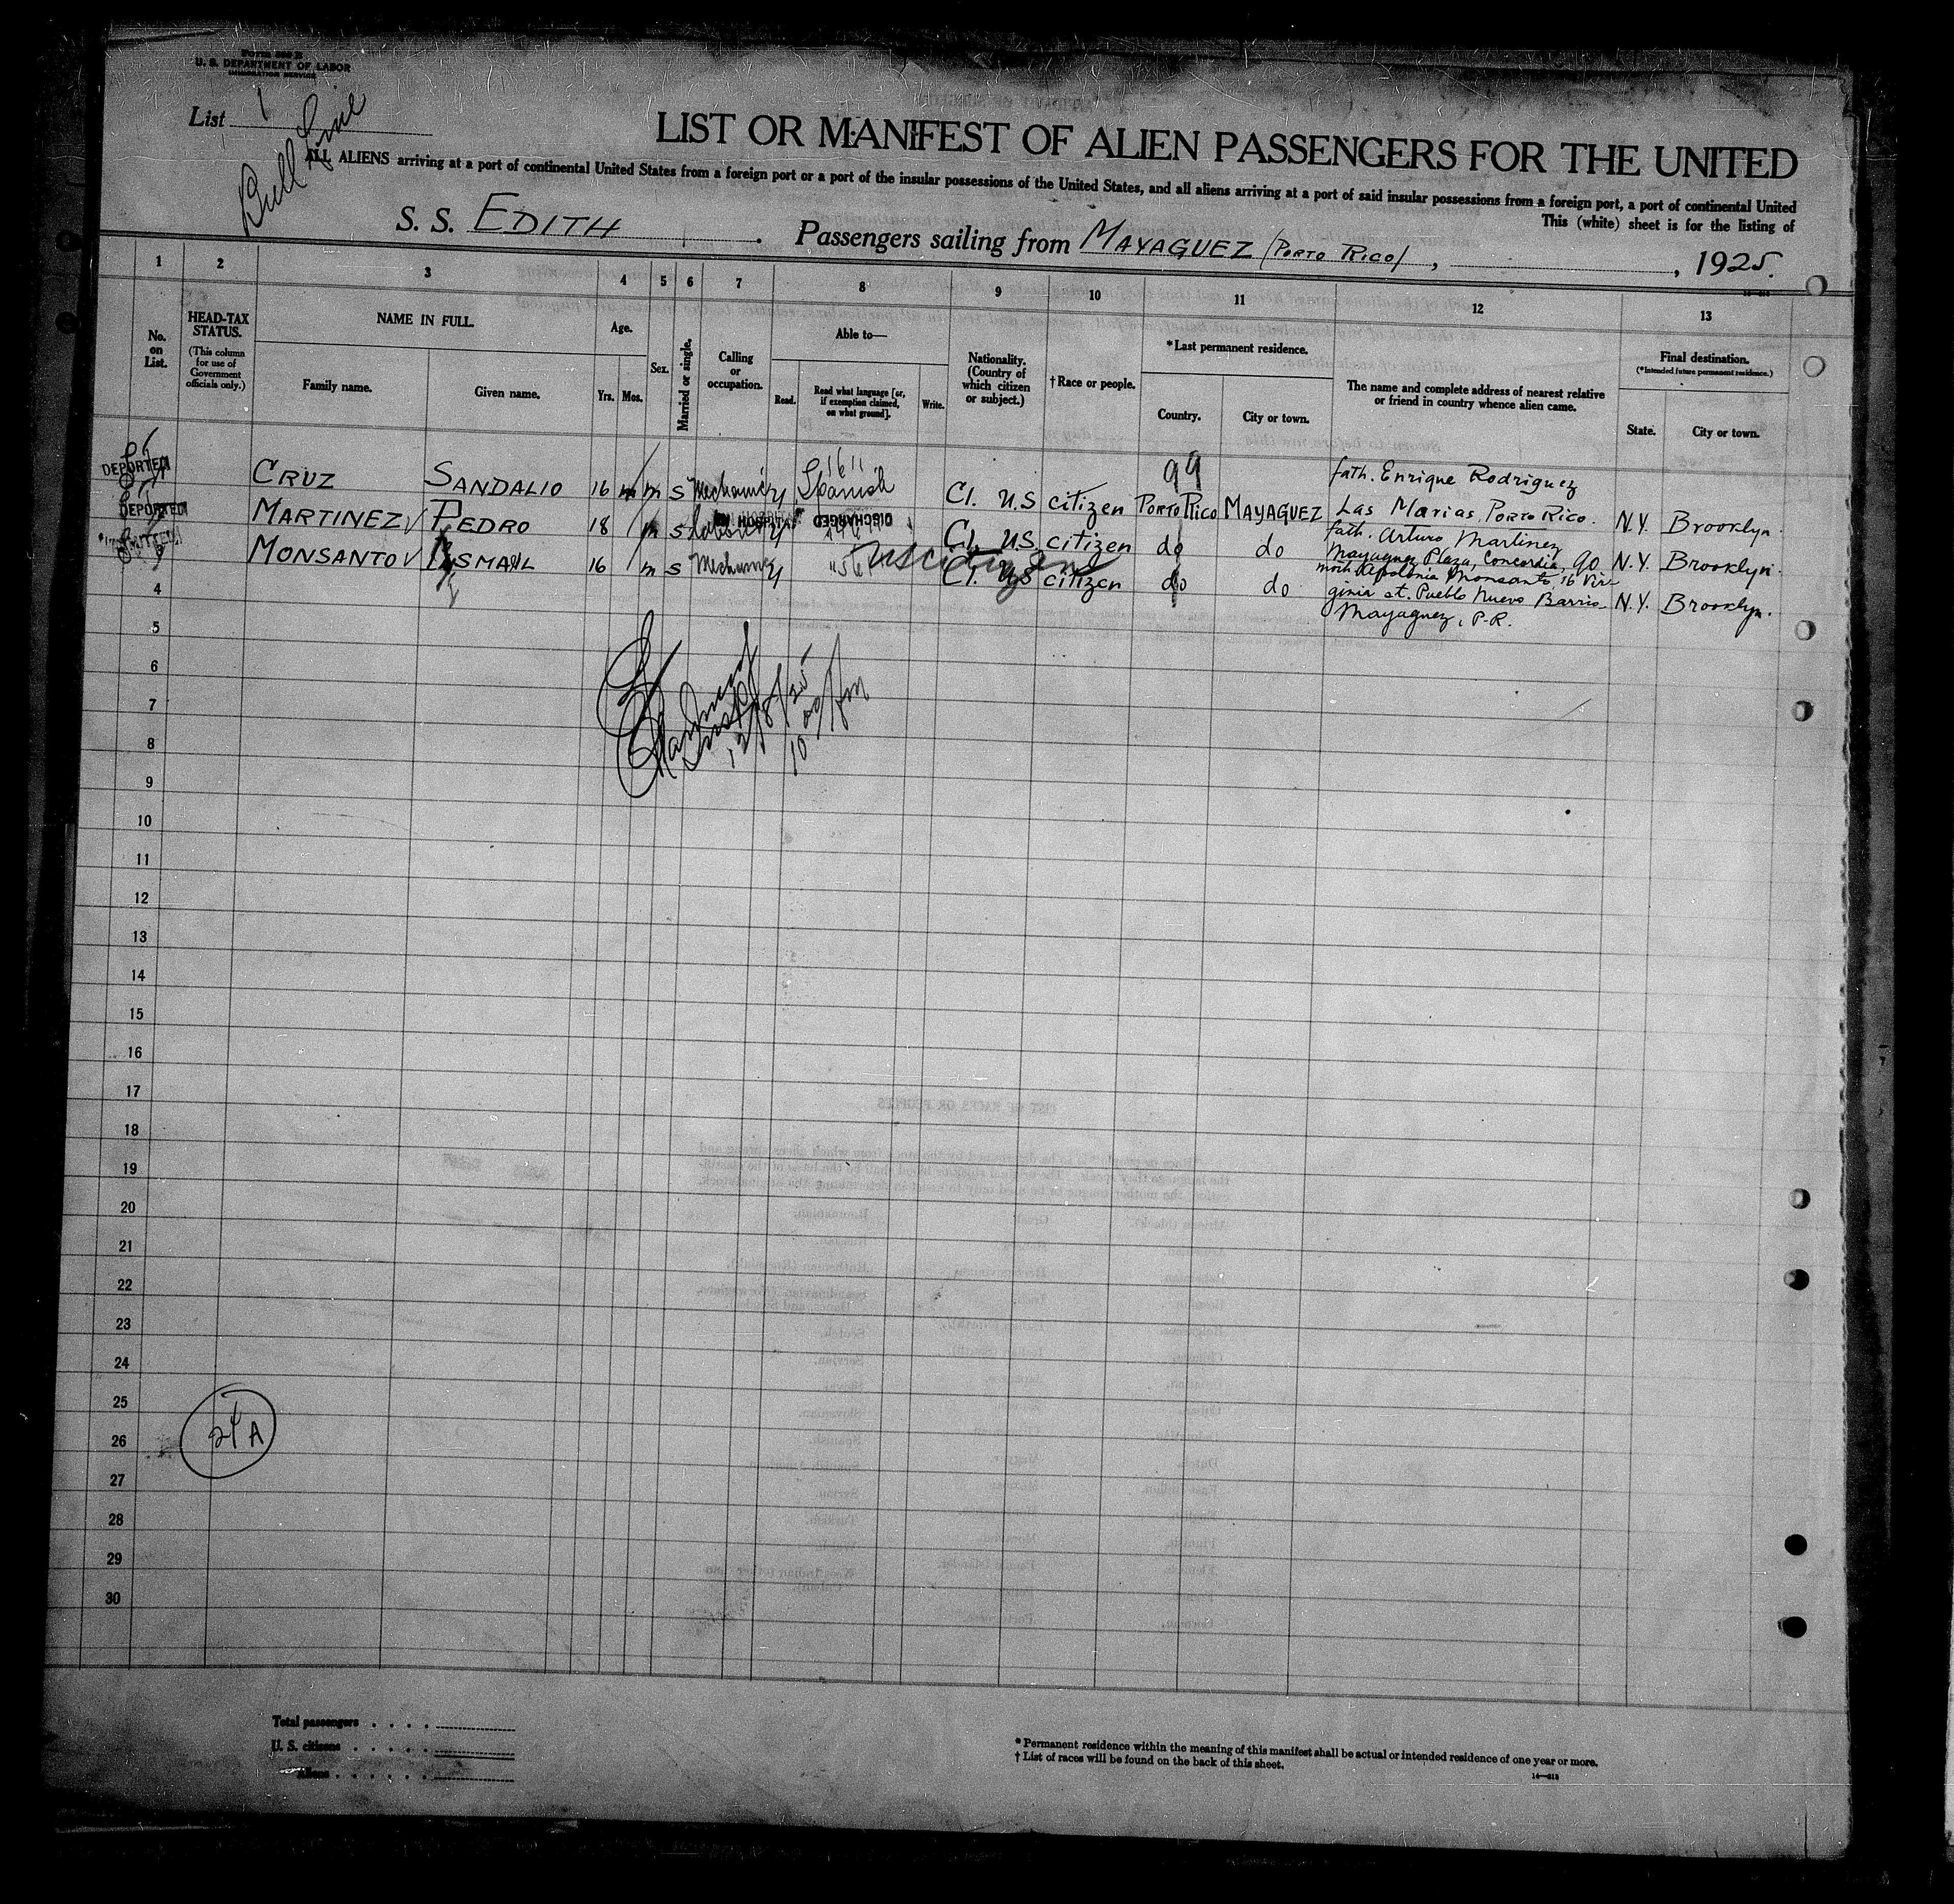 Form 500 B
U. S. DEPARTMENT OF LABOR
IMMIGRATION SERVICE
List 1
Bull Line
LIST OR MANIFEST OF ALIEN PASSENGERS FOR THE UNITED
ALL ALIENS arriving at a port of continental United States from a foreign port or a port of the insular possessions of the United States, and all aliens arriving at a port of said insular possessions from a foreign port, a port of continental United
This (white) sheet is for the listing of
S. S. EDITH . Passengers sailing from MAYAGUEZ (PORTO RICO) , , 1925.
1 2 3 4 5 6 7 8 9 10 11 12 13
No. on List.
HEAD-TAX STATUS.
(This column for use of Government officials only.)
NAME IN FULL.
Family name. Given name.
Age.
Yrs. Mos.
Sex.
Married or single.
Calling or occupation.
Able to—
Read. Read what language [or, if exemption claimed, on what ground]. Write.
Nationality. (Country of which citizen or subject.)
†Race or people.
*Last permanent residence.
Country. City or town.
The name and complete address of nearest relative or friend in country whence alien came.
Final destination.
(*Intended future permanent residence.)
State. City or town.
99
DEPORTED CRUZ SANDALIO 16 m s Mechanic y Spanish y CI. U.S citizen PORTO RICO MAYAGUEZ fath. Enrique Rodriguez
Las Marias, PORTO RICO. N.Y. Brooklyn.
DEPORTED MARTINEZ √ PEDRO 18 m s IN HOSPITAL DISCHARGED CI. U.S citizen do do fath. Arturo Martinez
Mayaguez Plaza, Concordia, 90 N.Y. Brooklyn.
MONSANTO √ ISMAEL 16 m s Mechanic y US citizens CI. US citizen do do moth Apolonia Monsanto, 16 Vir-
ginia st. Pueblo Nuevo Barrio N.Y. Brooklyn.
Mayaguez, P.R.
4
5
6
7
8
9
10
11
12
13
14
15
16
17
18
19
20
21
22
23
24
25
26
27
28
29
30
Insp
12/8/25
10 00/pm
24 A
Total passengers
U. S. citizens
Aliens
* Permanent residence within the meaning of this manifest shall be actual or intended residence of one year or more.
† List of races will be found on the back of this sheet.